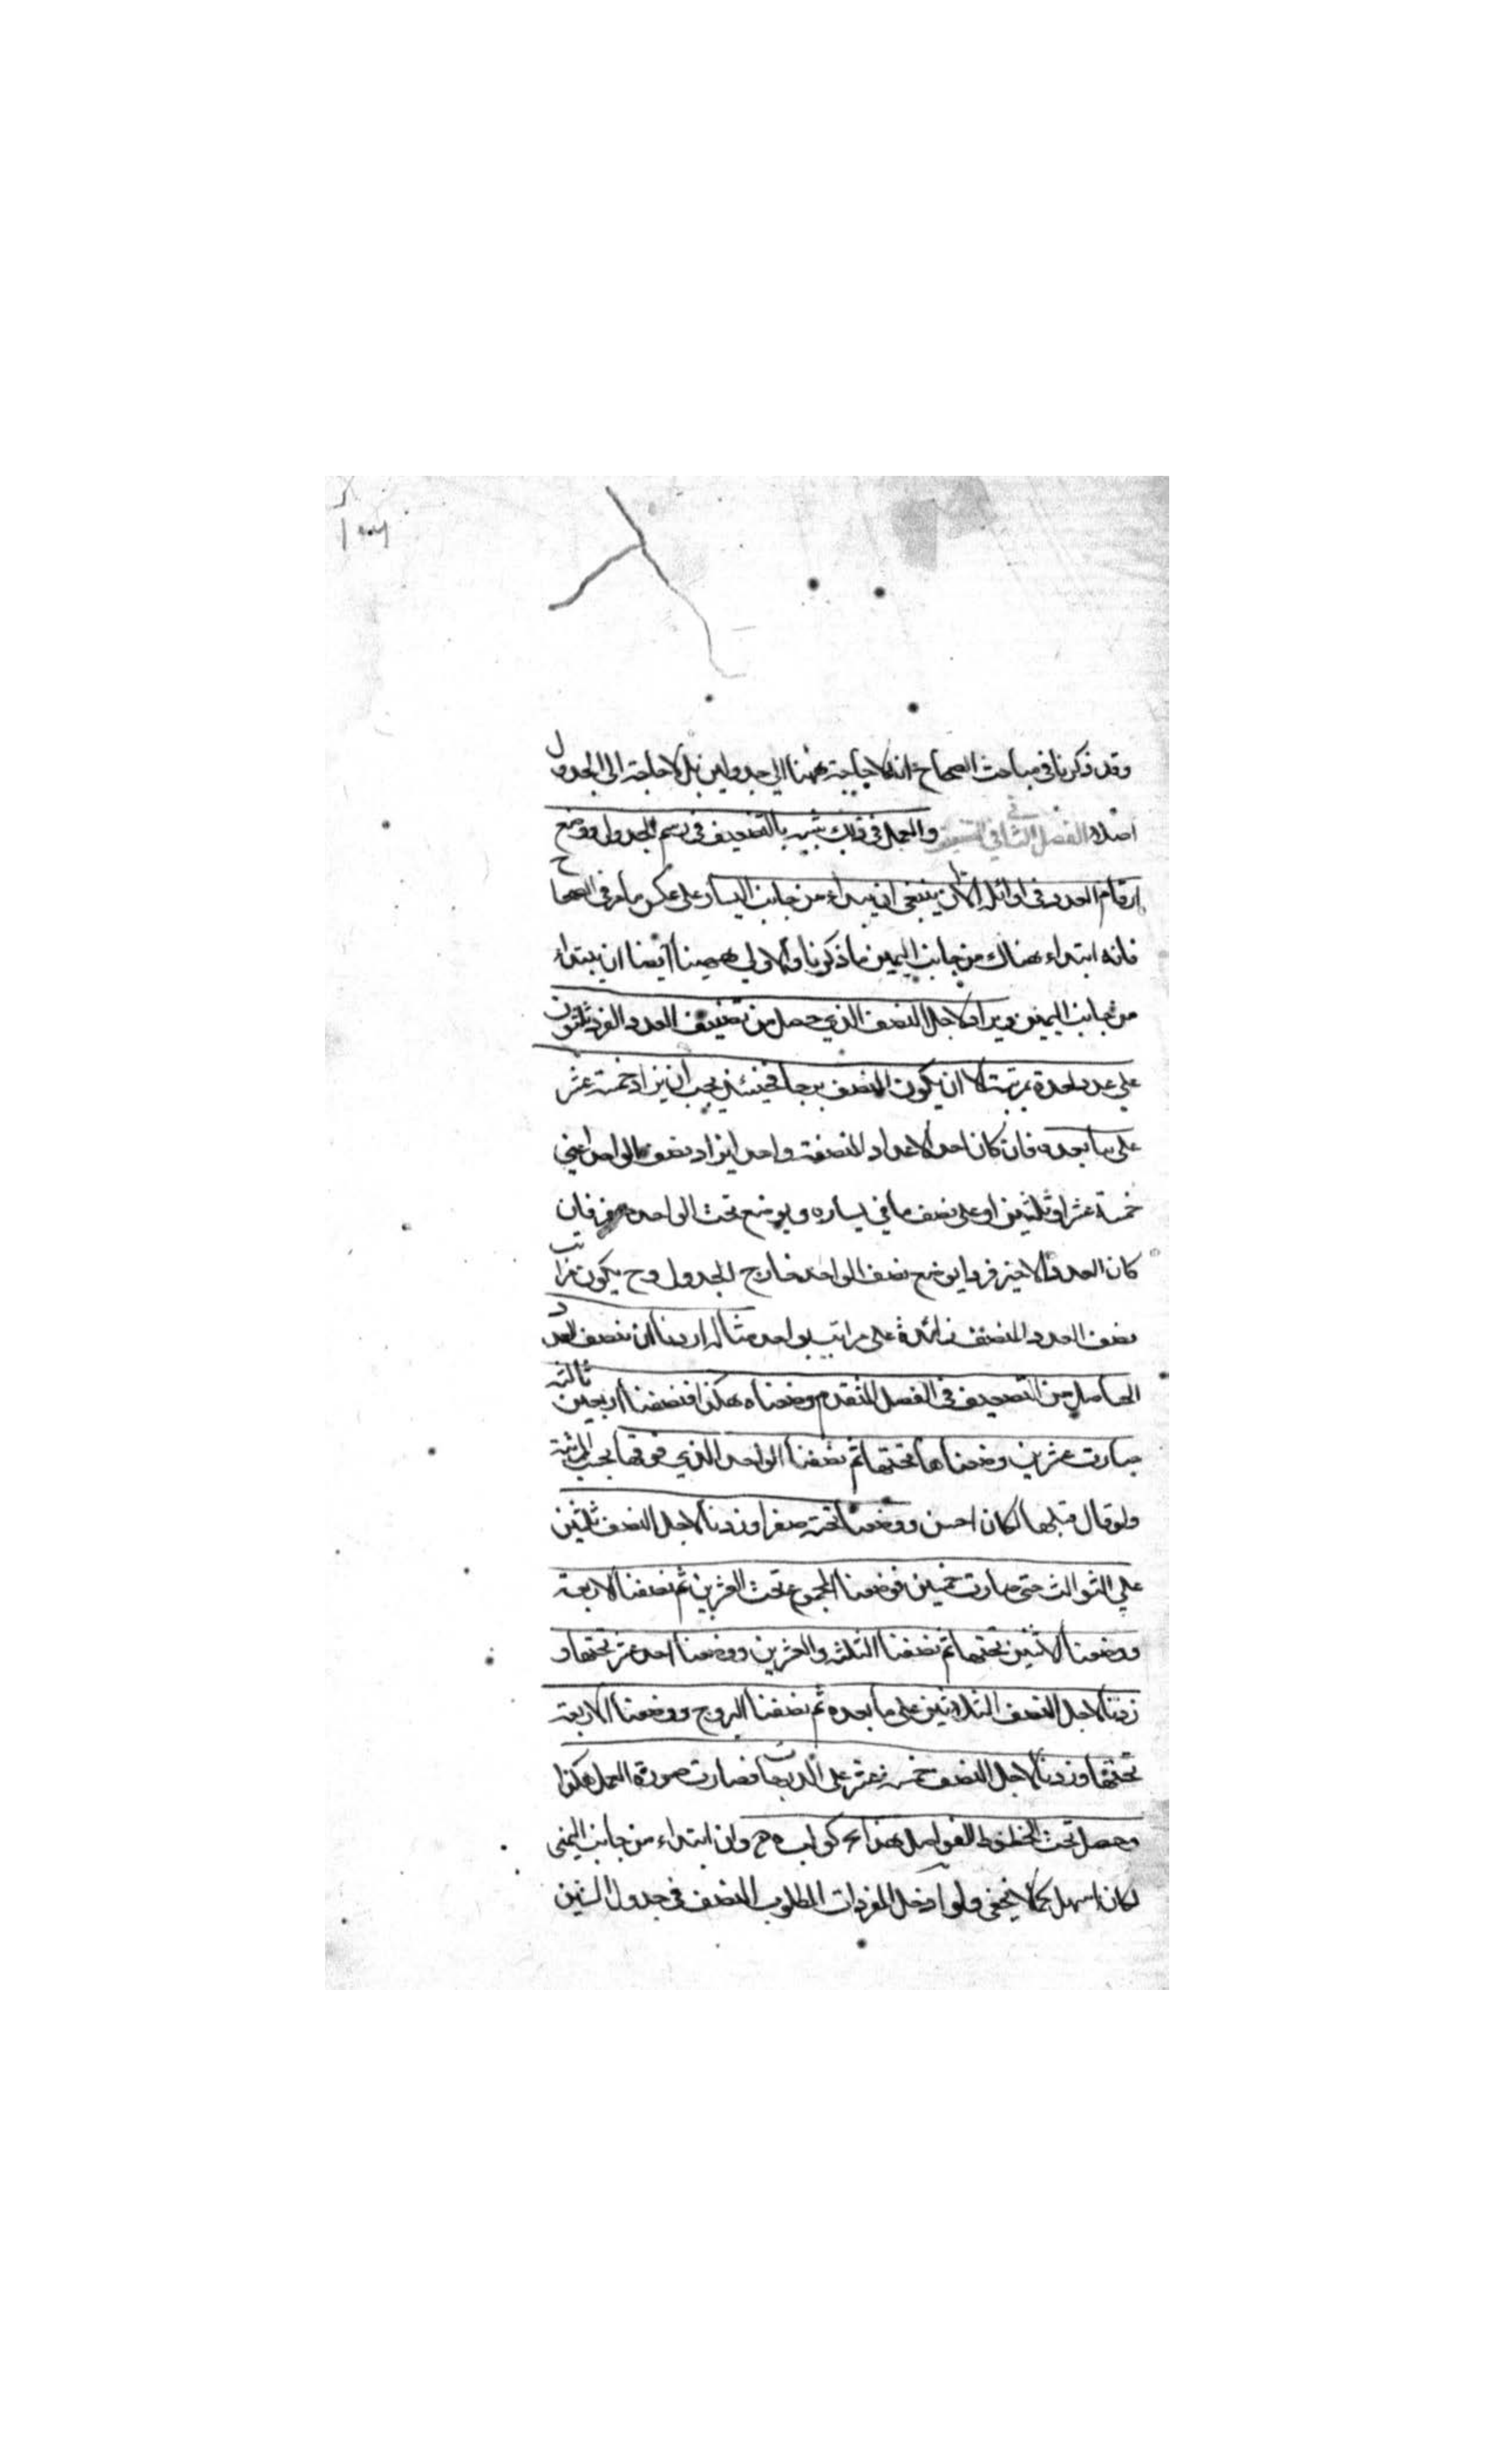 وقد ذكرنا في مباحث الصحاح انه لا حاجة ههنا الى جدولين بل لا حاجة الى الجدول
اصلا الفصل الثاني في التنصيف والعمل في ذلك شبيه بالتضعيف في رسم الجدول ووضع
ارقام العدد في اوائل الا ان ينبغي ان يبتداء من جانب اليسار على عكس ما مر في الصحاح
فانه ابتداء هناك من جانب اليمين ما ذكرنا والاولى ههنا ايضا ان يبتداء
من جانب اليمين ويزاد لاجل النصف الذي حصل من تنصيف العدد الفرد ثلثون
على عدد بعده بمرتبة الا ان يكون المنصف برجا فحينئذ يجب ان يزاد خمسة عشر
على ما بعده فان كان احد الاعداد المنصفة واحد ايزاد نصف الواحد اعني
خمسة عشر او ثلثين او على نصف ما في يساره ويوضع تحت الواحد صفر فان
كان العدد الاخير فردا يوضع نصف الواحد خارج الجدول وح يكون مراتب
نصف العدد المنصف زائدة على مراتب بواحد مثاله اردنا ان ننصف العدد
الحاصل من التضعيف في الفصل المتقدم وضعناه هكذا فنصفنا اربعين ثالثة
صارت عشرين وضعناها تحتها ثم نصفنا الواحد الذي فوقها بحسب المرتبة
ولو قال قبلها لكان احسن ووضعنا تحته صفرا وزدنا لاجل النصف ثلثين
على الثوالث حتى صارت خمسين فوضعنا المجموع تحت العشرين ثم نصفنا الاربعة
ووضعنا الاثنين تحتها ثم نصفنا الثلثة والعشرين ووضعنا احد عشر تحتها و
زدنا لاجل النصف الثلاثين على ما بعده ثم نصفنا البروج ووضعنا الاربعة
تحتها وزدنا لاجل النصف خمسة عشر على الدرجات فصارت صورة العمل هكذا
وحصل تحت الخطوط الفواصل هذا وان ابتداء من جانب اليمنى
لكان اسهل كما لا يخفى ولو ادخل المفردات المطلوب المنصف في جدول الستين